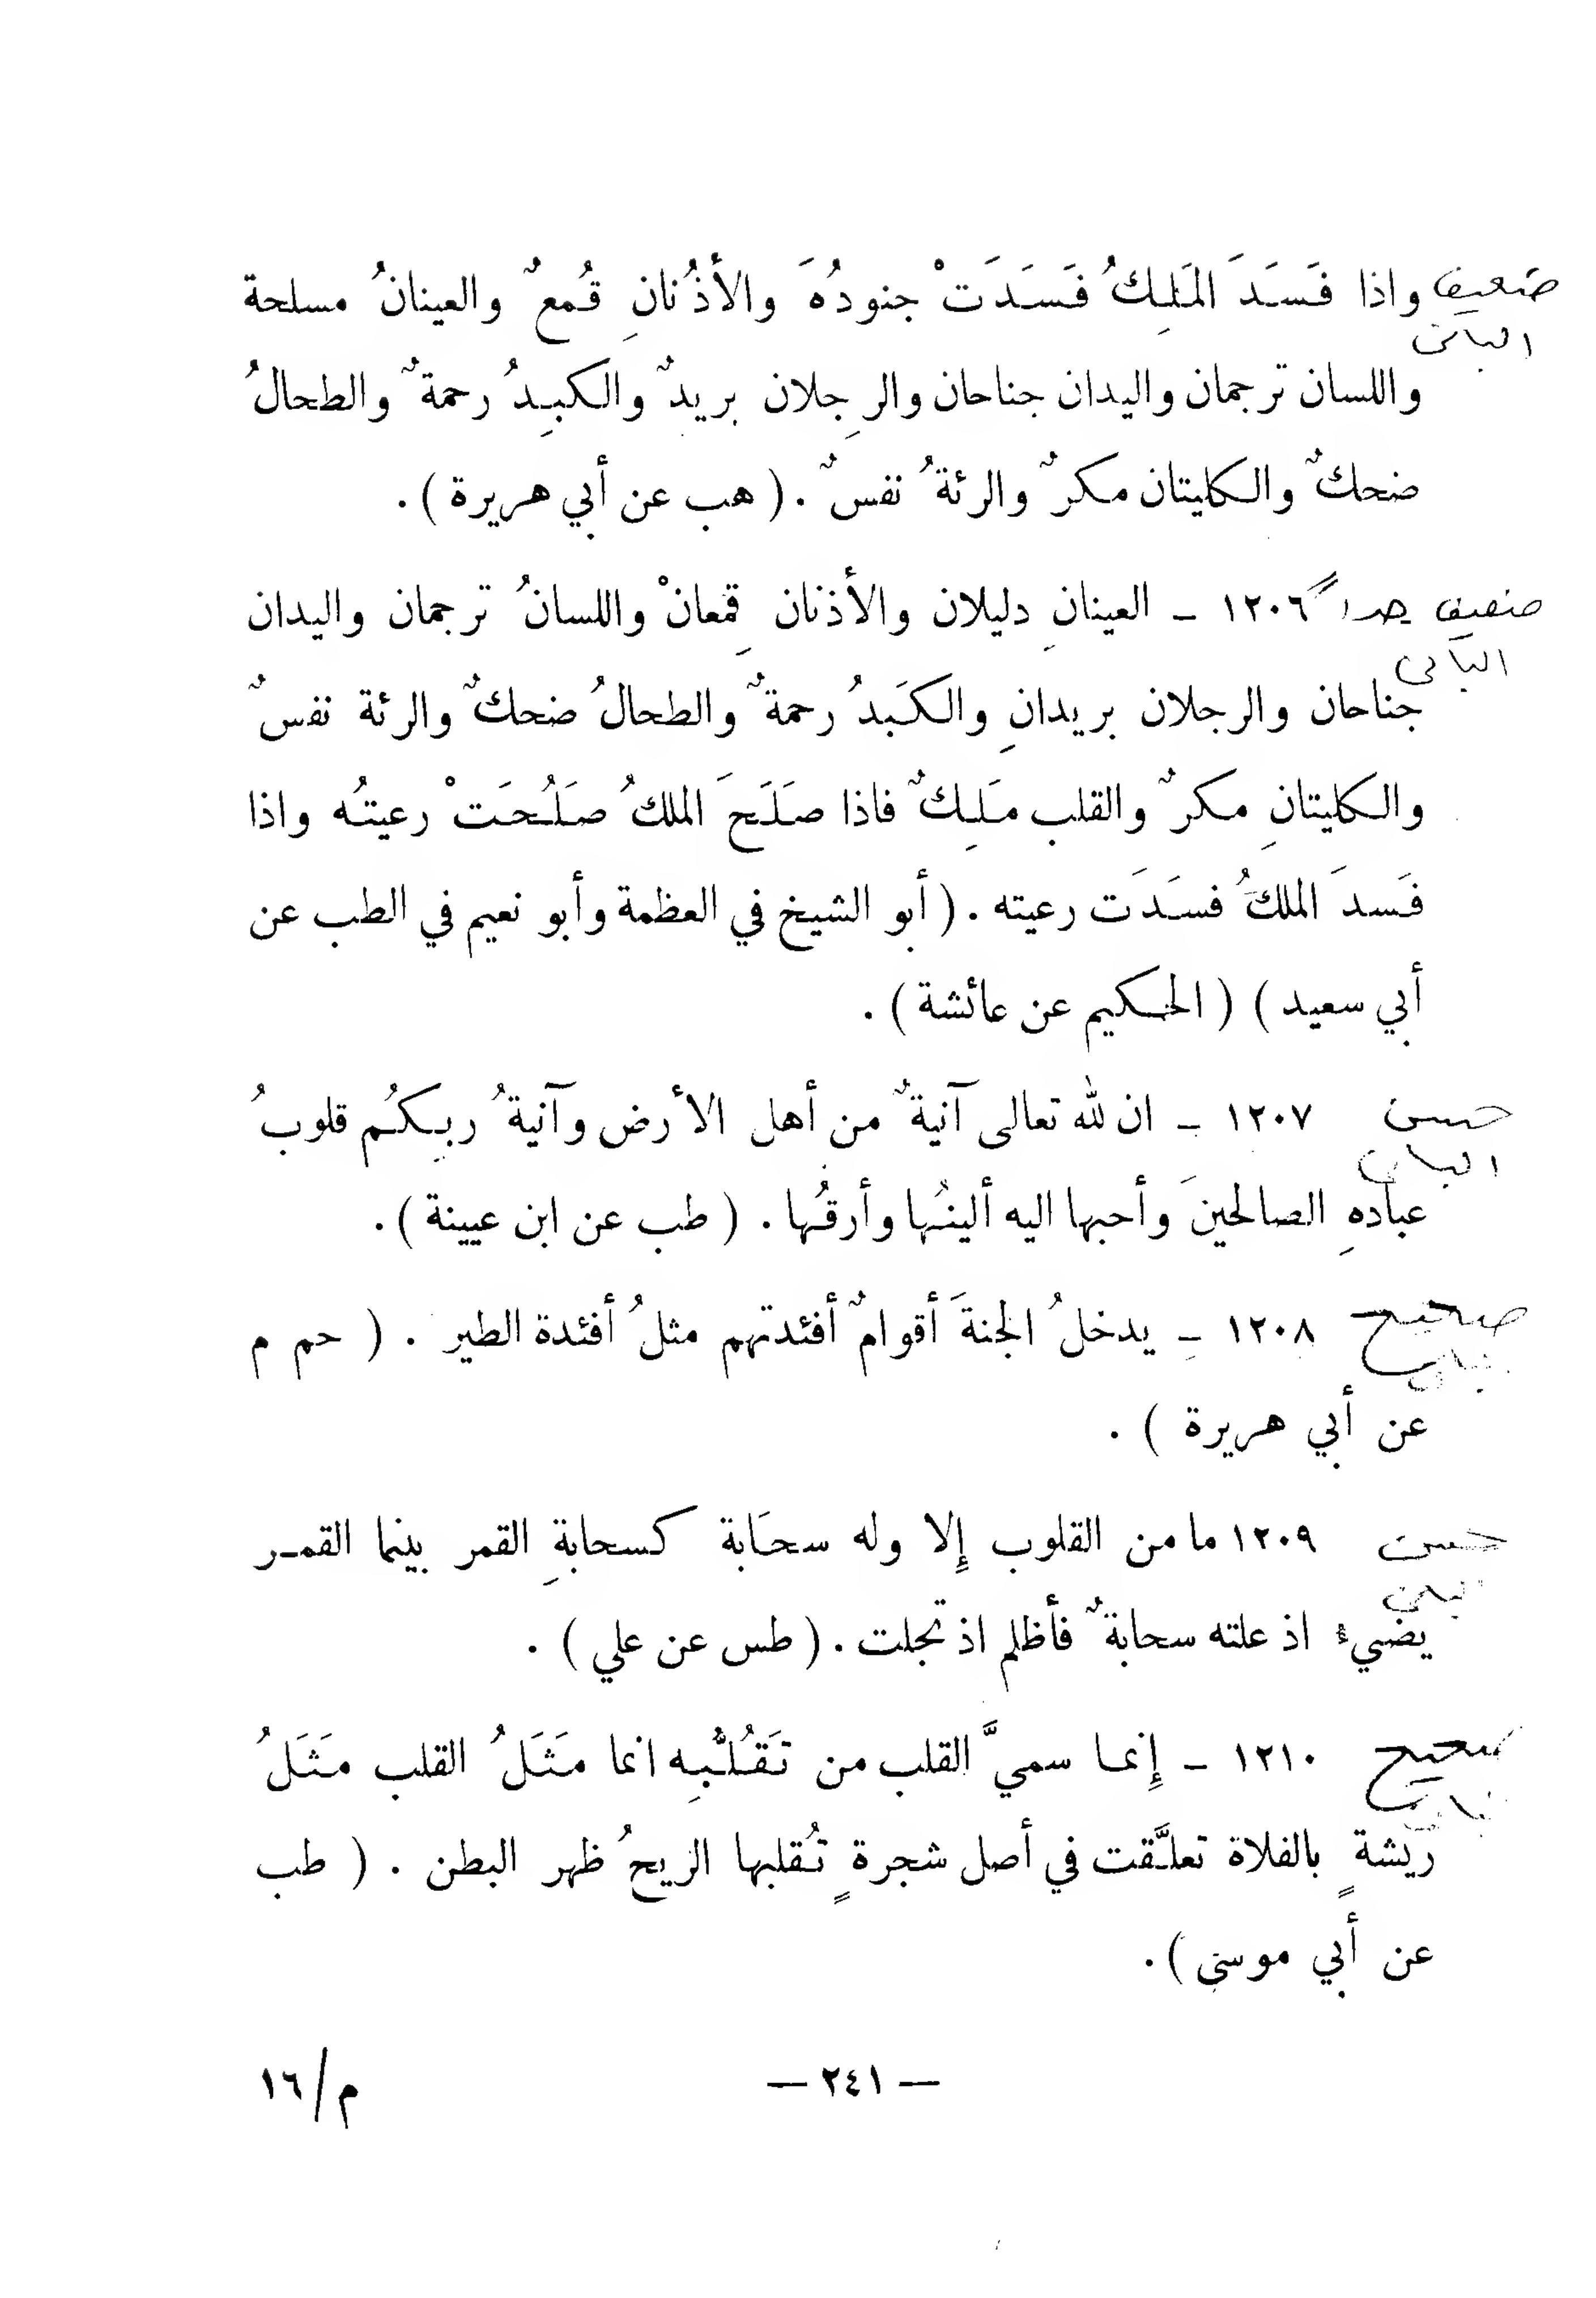 ضعيف واذا فَسَدَ المَلِكُ فَسَدَتْ جنودُهَ والأذُنانِ قُمعٌ والعينانُ مسلحة
الباني
واللسان ترجمان واليدان جناحان والرِجلان بريدٌ والكبِدُ رحمةٌ والطحالُ
ضحكٌ والكليتان مكرٌ والرئةُ نفسٌ . ( هب عن أبي هريرة ) .
ضعيف جداً ١٢٠٦ – العينانِ دليلان والأذنان قِمعانْ واللسانُ ترجمان واليدان
الباني
جناحان والرجلان بريدانِ والكَبدُ رحمةٌ والطحالُ ضحكٌ والرئة نفسٌ
والكليتانِ مكرٌ والقلب مَلِكٌ فاذا صَلَحَ الملكُ صَلُحَتْ رعيتُه واذا
فَسدَ الملكُ فسَدَت رعيته . ( أبو الشيخ في العظمة وأبو نعيم في الطب عن
أبي سعيد ) ( الحكيم عن عائشة ) .
حسن ١٢٠٧ – ان لله تعالى آنيةٌ من أهل الأرض وآنيةُ ربِكُم قلوبُ
الباني
عبادهِ الصالحينَ وأحبها اليه ألينُها وأرقُها . ( طب عن ابن عيينة ) .
صحيح ١٢٠٨ – يدخلُ الجنةَ أقوامٌ أفئدتهم مثلُ أفئدة الطير . ( حم م
عن أبي هريرة ) .
حسن ١٢٠٩ ما من القلوب إِلا وله سحَابة كسحابةِ القمر بينما القمر
يضيء اذ علته سحابةٌ فأظلم اذ تجلت . ( طس عن علي ) .
صحيح ١٢١٠ – إِنما سميَّ القلب من تَقُلُّبِه انما مَثَلُ القلب مَثَلُ
ريشةٍ بالفلاة تعلَّقت في أصل شجرةٍ تُقلبها الريحُ ظهر البطن . ( طب
عن أبي موسى ) .
— ٢٤١ —
م/١٦